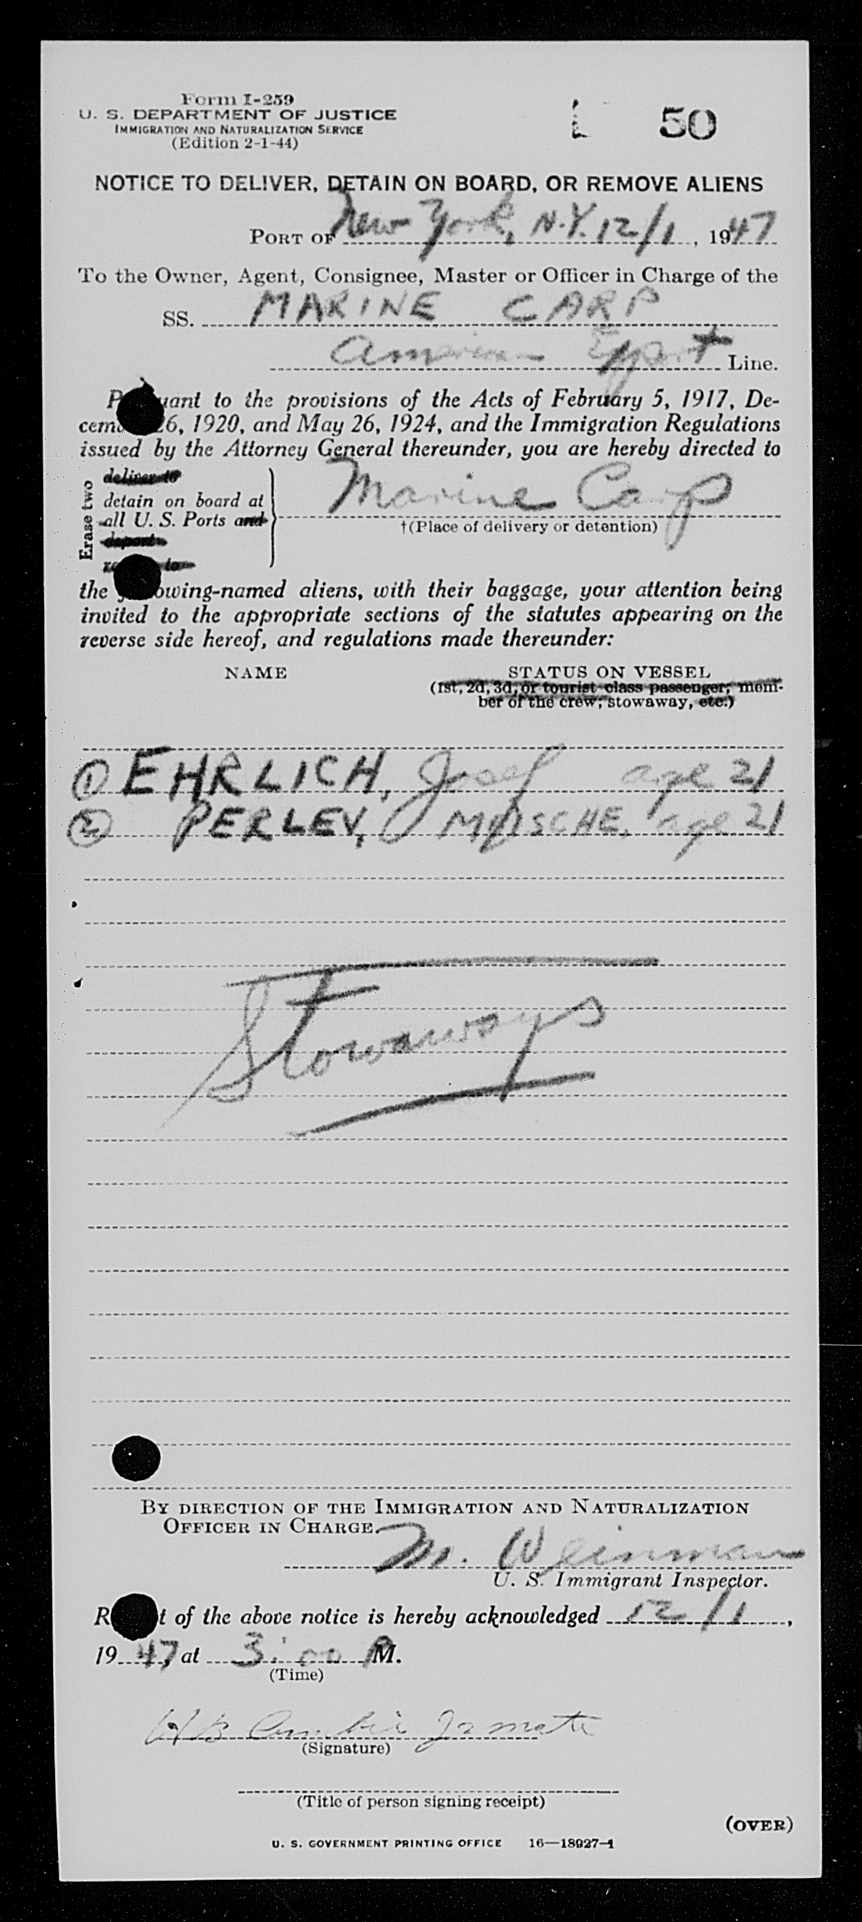 Form I-259
U. S. DEPARTMENT OF JUSTICE
IMMIGRATION AND NATURALIZATION SERVICE
(Edition 2-1-44)
50
NOTICE TO DELIVER, DETAIN ON BOARD, OR REMOVE ALIENS
PORT OF New York, N.Y. 12/1, 1947
To the Owner, Agent, Consignee, Master or Officer in Charge of the
SS. MARINE CARP
American Export Line.
P uant to the provisions of the Acts of February 5, 1917, De-
cem 26, 1920, and May 26, 1924, and the Immigration Regulations
issued by the Attorney General thereunder, you are hereby directed to
Erase two
deliver to
detain on board at
all U. S. Ports and
deport
to
Marine Carp
†(Place of delivery or detention)
the owing-named aliens, with their baggage, your attention being
invited to the appropriate sections of the statutes appearing on the
reverse side hereof, and regulations made thereunder:
NAME STATUS ON VESSEL
(1st, 2d, 3d, or tourist class passenger, mem-
ber of the crew, stowaway, etc.)
① EHRLICH, Josef age 21
② PERLEV, MOISCHE, age 21
Stowaways
BY DIRECTION OF THE IMMIGRATION AND NATURALIZATION
OFFICER IN CHARGE.
M. Weinman
U. S. Immigrant Inspector.
R t of the above notice is hereby acknowledged 12/1,
1947, at 3:00 P M.
(Time)
HB
(Signature)
(Title of person signing receipt)
(OVER)
U. S. GOVERNMENT PRINTING OFFICE 16—18927-1